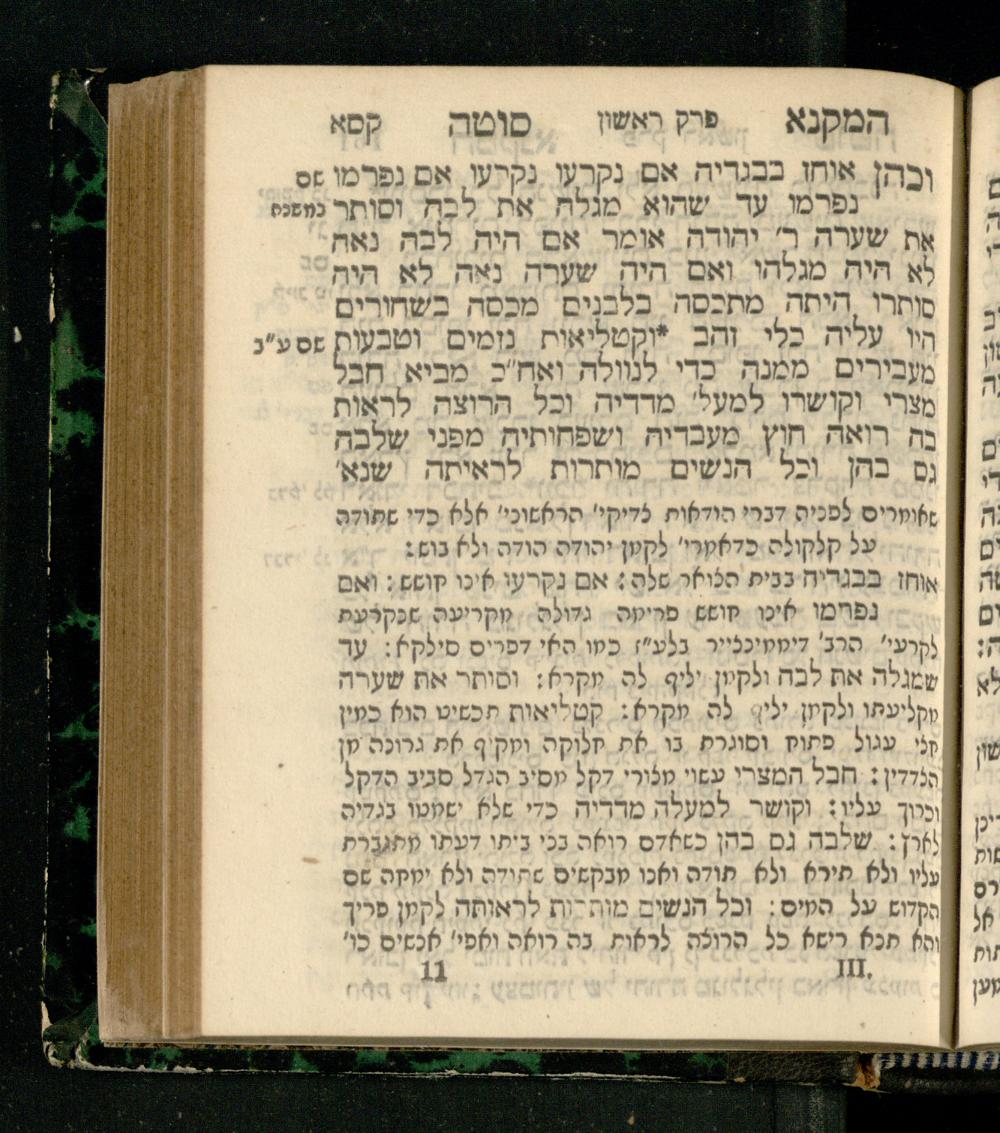 המקנא פרק ראשון סוטה קסא
וכהן אוחז בבגדיה אם נקרעו נקרעו אם נפרמו שם
נפרמו עד שהוא מגלה את לבה וסותר במשנה
את שערה ר׳ יהודה אומר אם היה לבה נאה
לא היה מגלהו ואם היה שערה נאה לא היה
סותרו היתה מתכסה בלבנים מכסה בשחורים
היו עליה כלי זהב *וקטליאות נזמים וטבעות שם ע״ב
מעבירים ממנה כדי לנוולה ואח״כ מביא חבל
מצרי וקושרו למעל׳ מדדיה וכל הרוצה לראות
בה רואה חוץ מעבדיה ושפחותיה מפני שלבה
גם בהן וכל הנשים מותרות לראיתה שנא׳
שאומרים לפניה דברי הודאות לדיקי׳ הראשוני׳ אלא כדי שתודה
על קלקולה כדאמרי׳ לקמן יהודה הודה ולא בוש:
אוחז בבגדיה בבית הצואר שלה: אם נקרעו אינו חושש: ואם
נפרימו אינו חושש פרימה גדולה מקריעה שנקרעת
לקרעי׳ הרב׳ דימיינצייר בלע״ז כמו האי דפריס סילקא: עד
שמגלה את לבה ולקמן יליף לה מקרא: וסותר את שערה
מקליעתו ולקמן יליף לה מקרא: קטליאות תכשיט הוא כמין
חלי עגול פתוח וסוגרת בו את חלוקה ומקיף את גרונה מן
הצדדין: חבל המצרי עשוי מצורי דקל מסיב הגדל סביב הדקל
וכרוך עליו: וקושר למעלה מדדיה כדי שלא ישמטו בגדיה
לארץ: שלבה גם בהן כשאדם רואה בני ביתו דעתו מתגברת
עליו ולא תירא ולא תודה ואנו מבקשים שתודה ולא ימקה שם
הקדוש על המים: וכל הנשים מותרות לראותה לקמן פריך
והא תנא רישא כל הרוצה לראות בה רואה ואפי׳ אנשים כו׳
III. 11